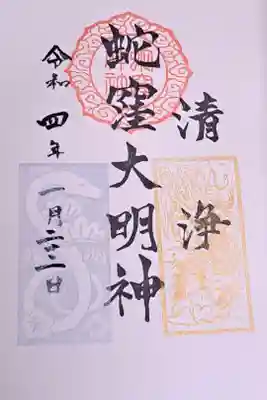 清浄
蛇窪大明神
令和四年
一月二三日